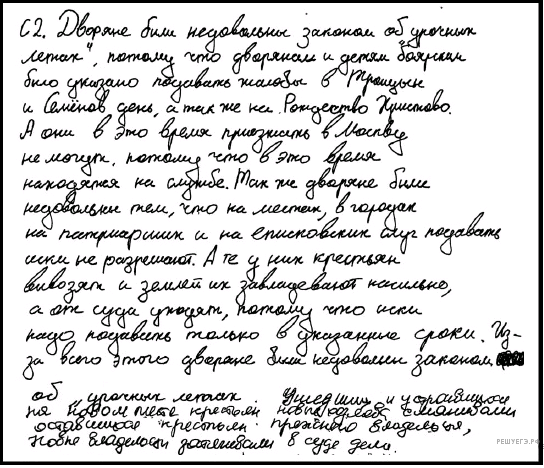 С2. Дворяне были недовольны законом об „урочных
летах", потому что дворянам и детям боярским
было указано подавать жалобы в Троицын
и Семёнов день, а так же на Рождество Христово.
А они в это время приезжать в Москву
не могут, потому что в это время
находятся на службе. Так же дворяне были
недовольны тем, что на местах, в городах
на патриарших и на епископских слуг подавать
иски не разрешают. А те у них крестьян
вывозят и землёй их завладевают насильно,
а от суда уходят, потому что иски
надо подавать только в указанные сроки. Из-
за всего этого дворяне были недовольны законом
об „урочных летах". Ушедшие и устроившиеся
на новом месте крестьяне сманивали
оставшихся крестьян прежнего владельца,
новые владельцы затягивали в суде дела.
РЕШУЕГЭ.РФ